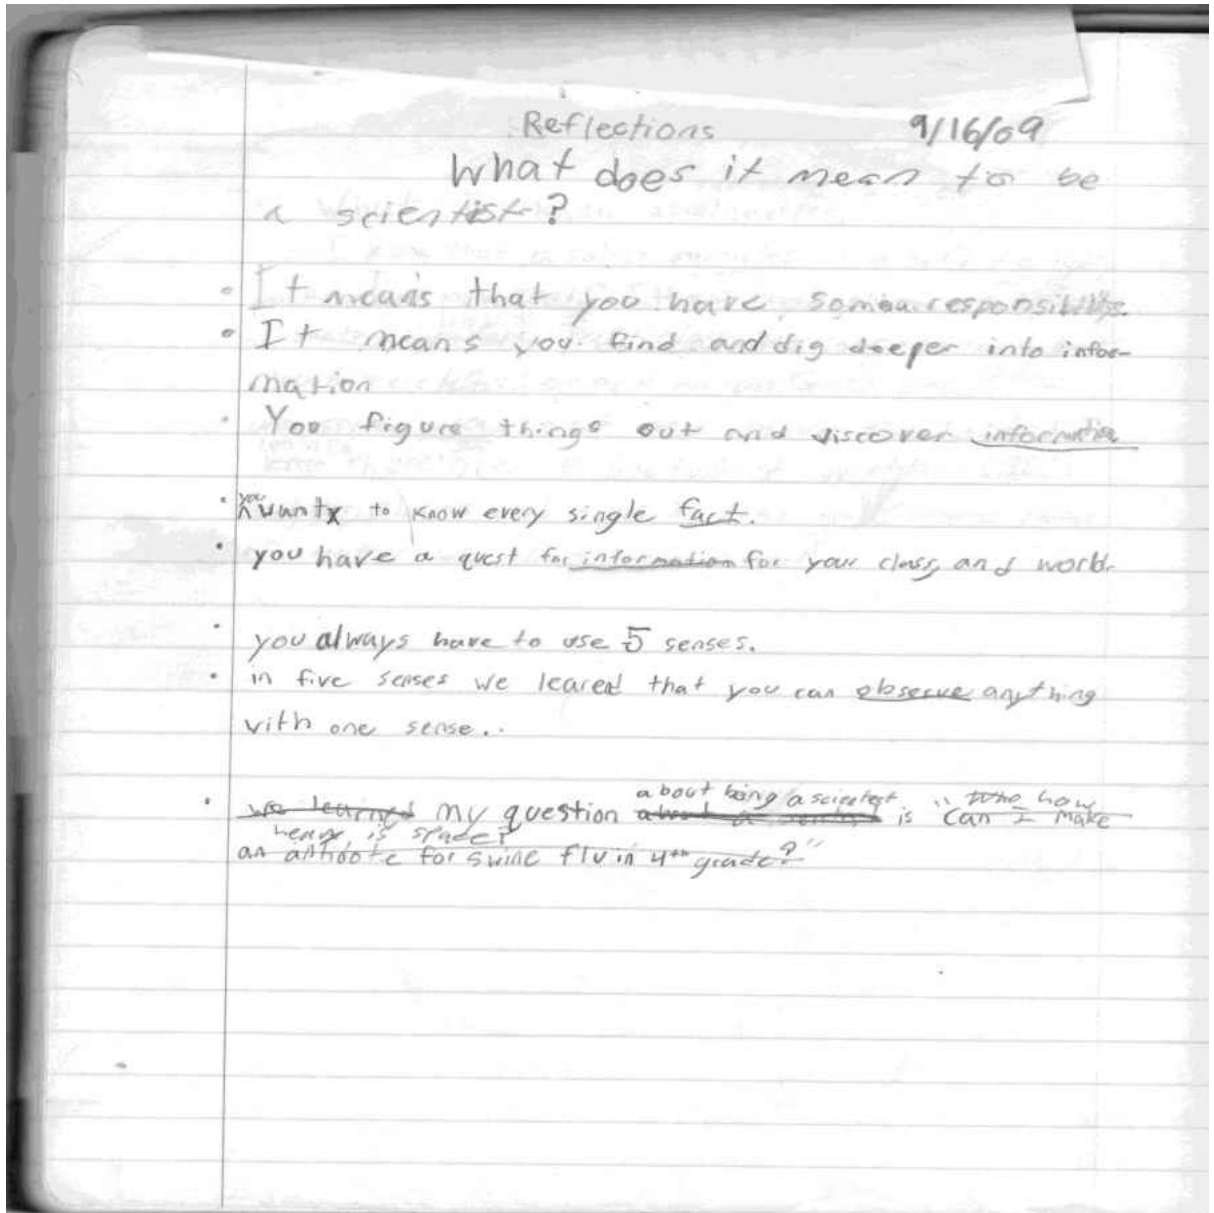 Reflections 9/16/09
What does it mean to be
a scientist?
• It means that you have responsibilities
• It means you find and dig deeper into infor-
mation
• You figure things out and discover information
• you want to know every single fact.
• you have a quest for information for your class, and world.
• you always have to use 5 senses.
• in five senses we leared that you can observe anything
with one sense..
about being a scientest how
• we learned my question is "can I make
heavy is space?
an antidote for swine flu in 4th grade?"